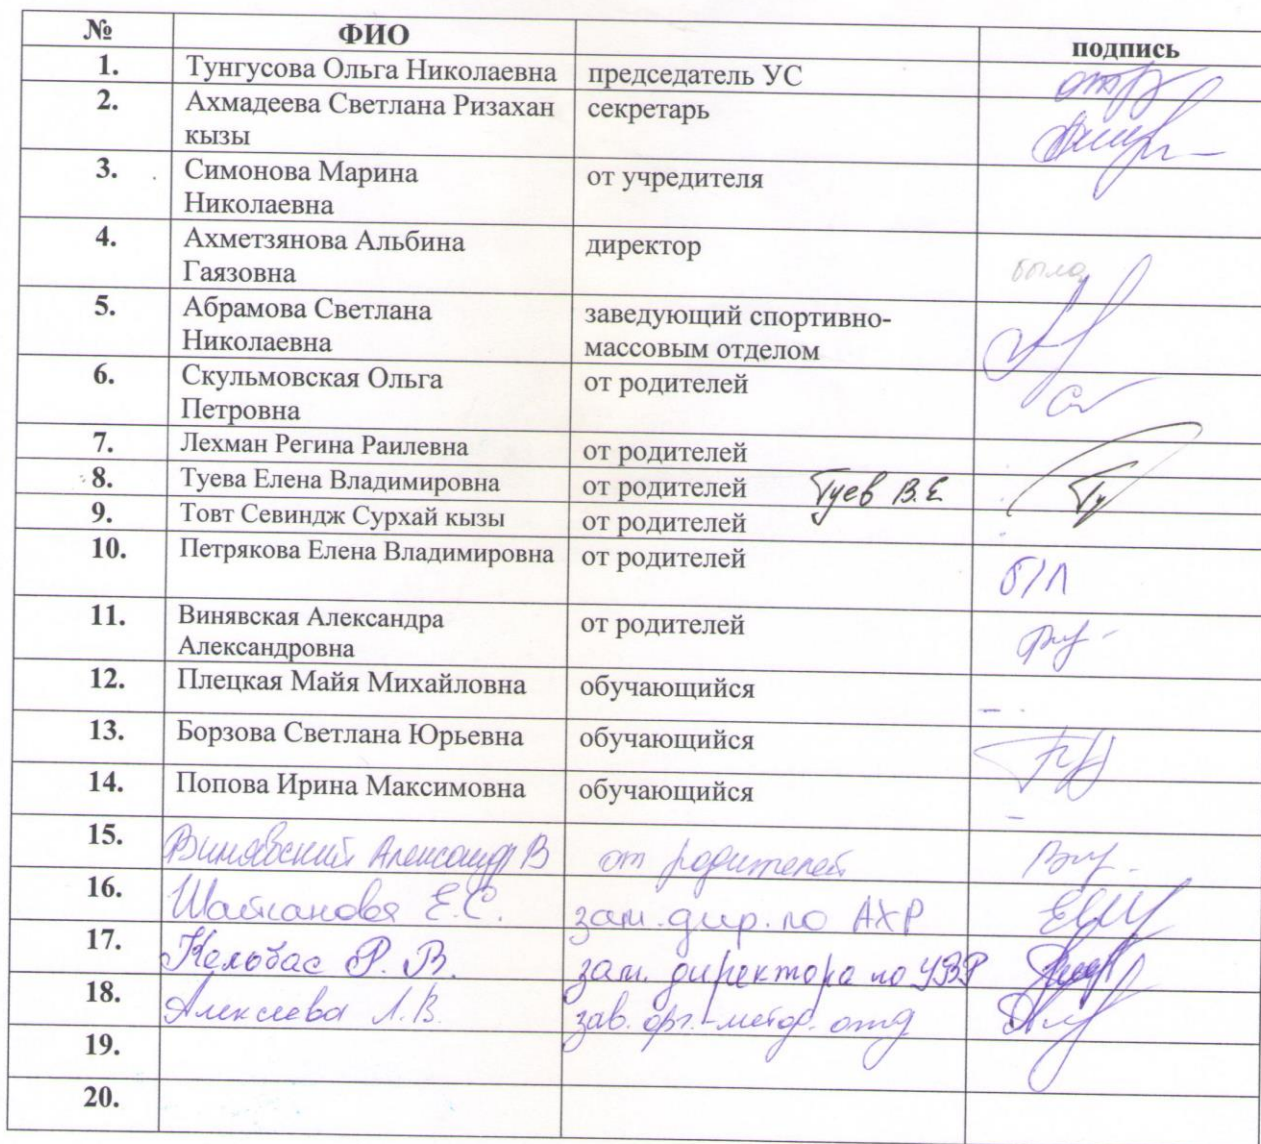 № ФИО подпись
1. Тунгусова Ольга Николаевна председатель УС
2. Ахмадеева Светлана Ризахан секретарь
кызы
3. Симонова Марина от учредителя
Николаевна
4. Ахметзянова Альбина директор
Гаязовна была
5. Абрамова Светлана заведующий спортивно-
Николаевна массовым отделом
6. Скульмовская Ольга от родителей
Петровна
7. Лехман Регина Раилевна от родителей
8. Туева Елена Владимировна от родителей Туев В.Е
9. Товт Севиндж Сурхай кызы от родителей
10. Петрякова Елена Владимировна от родителей
б/л
11. Винявская Александра от родителей
Александровна
12. Плецкая Майя Михайловна обучающийся
13. Борзова Светлана Юрьевна обучающийся
14. Попова Ирина Максимовна обучающийся
15. Винявский Александр В от родителей
16. Е.С. зам. дир. по АХР
17. Кельбас Р. В. зам. директора по УВР
18. Алексеева Л.В. зав. орг.-метод. отд
19.
20.